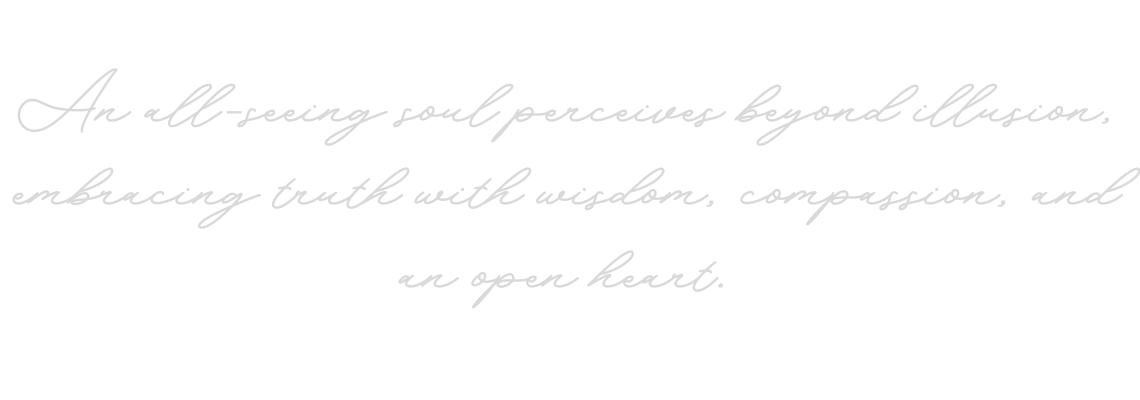 An all-seeing soul perceives beyond illusion,
embracing truth with wisdom, compassion, and
an open heart.